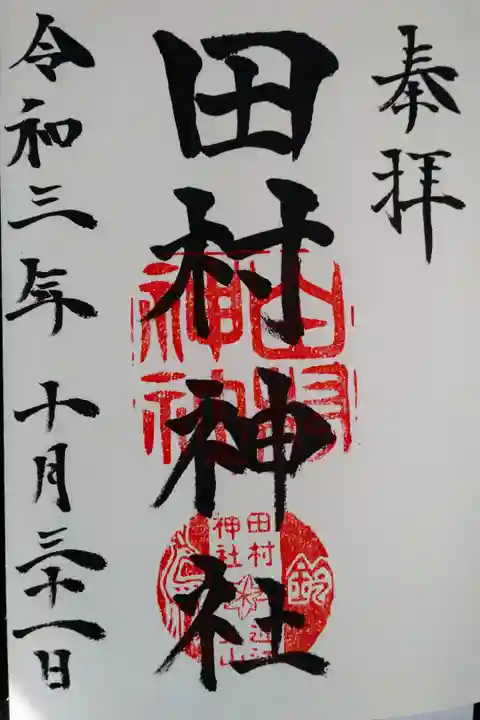 奉拝
田村神社
田村
神社
田村
神社
鈴
令和三年 十月三十一日